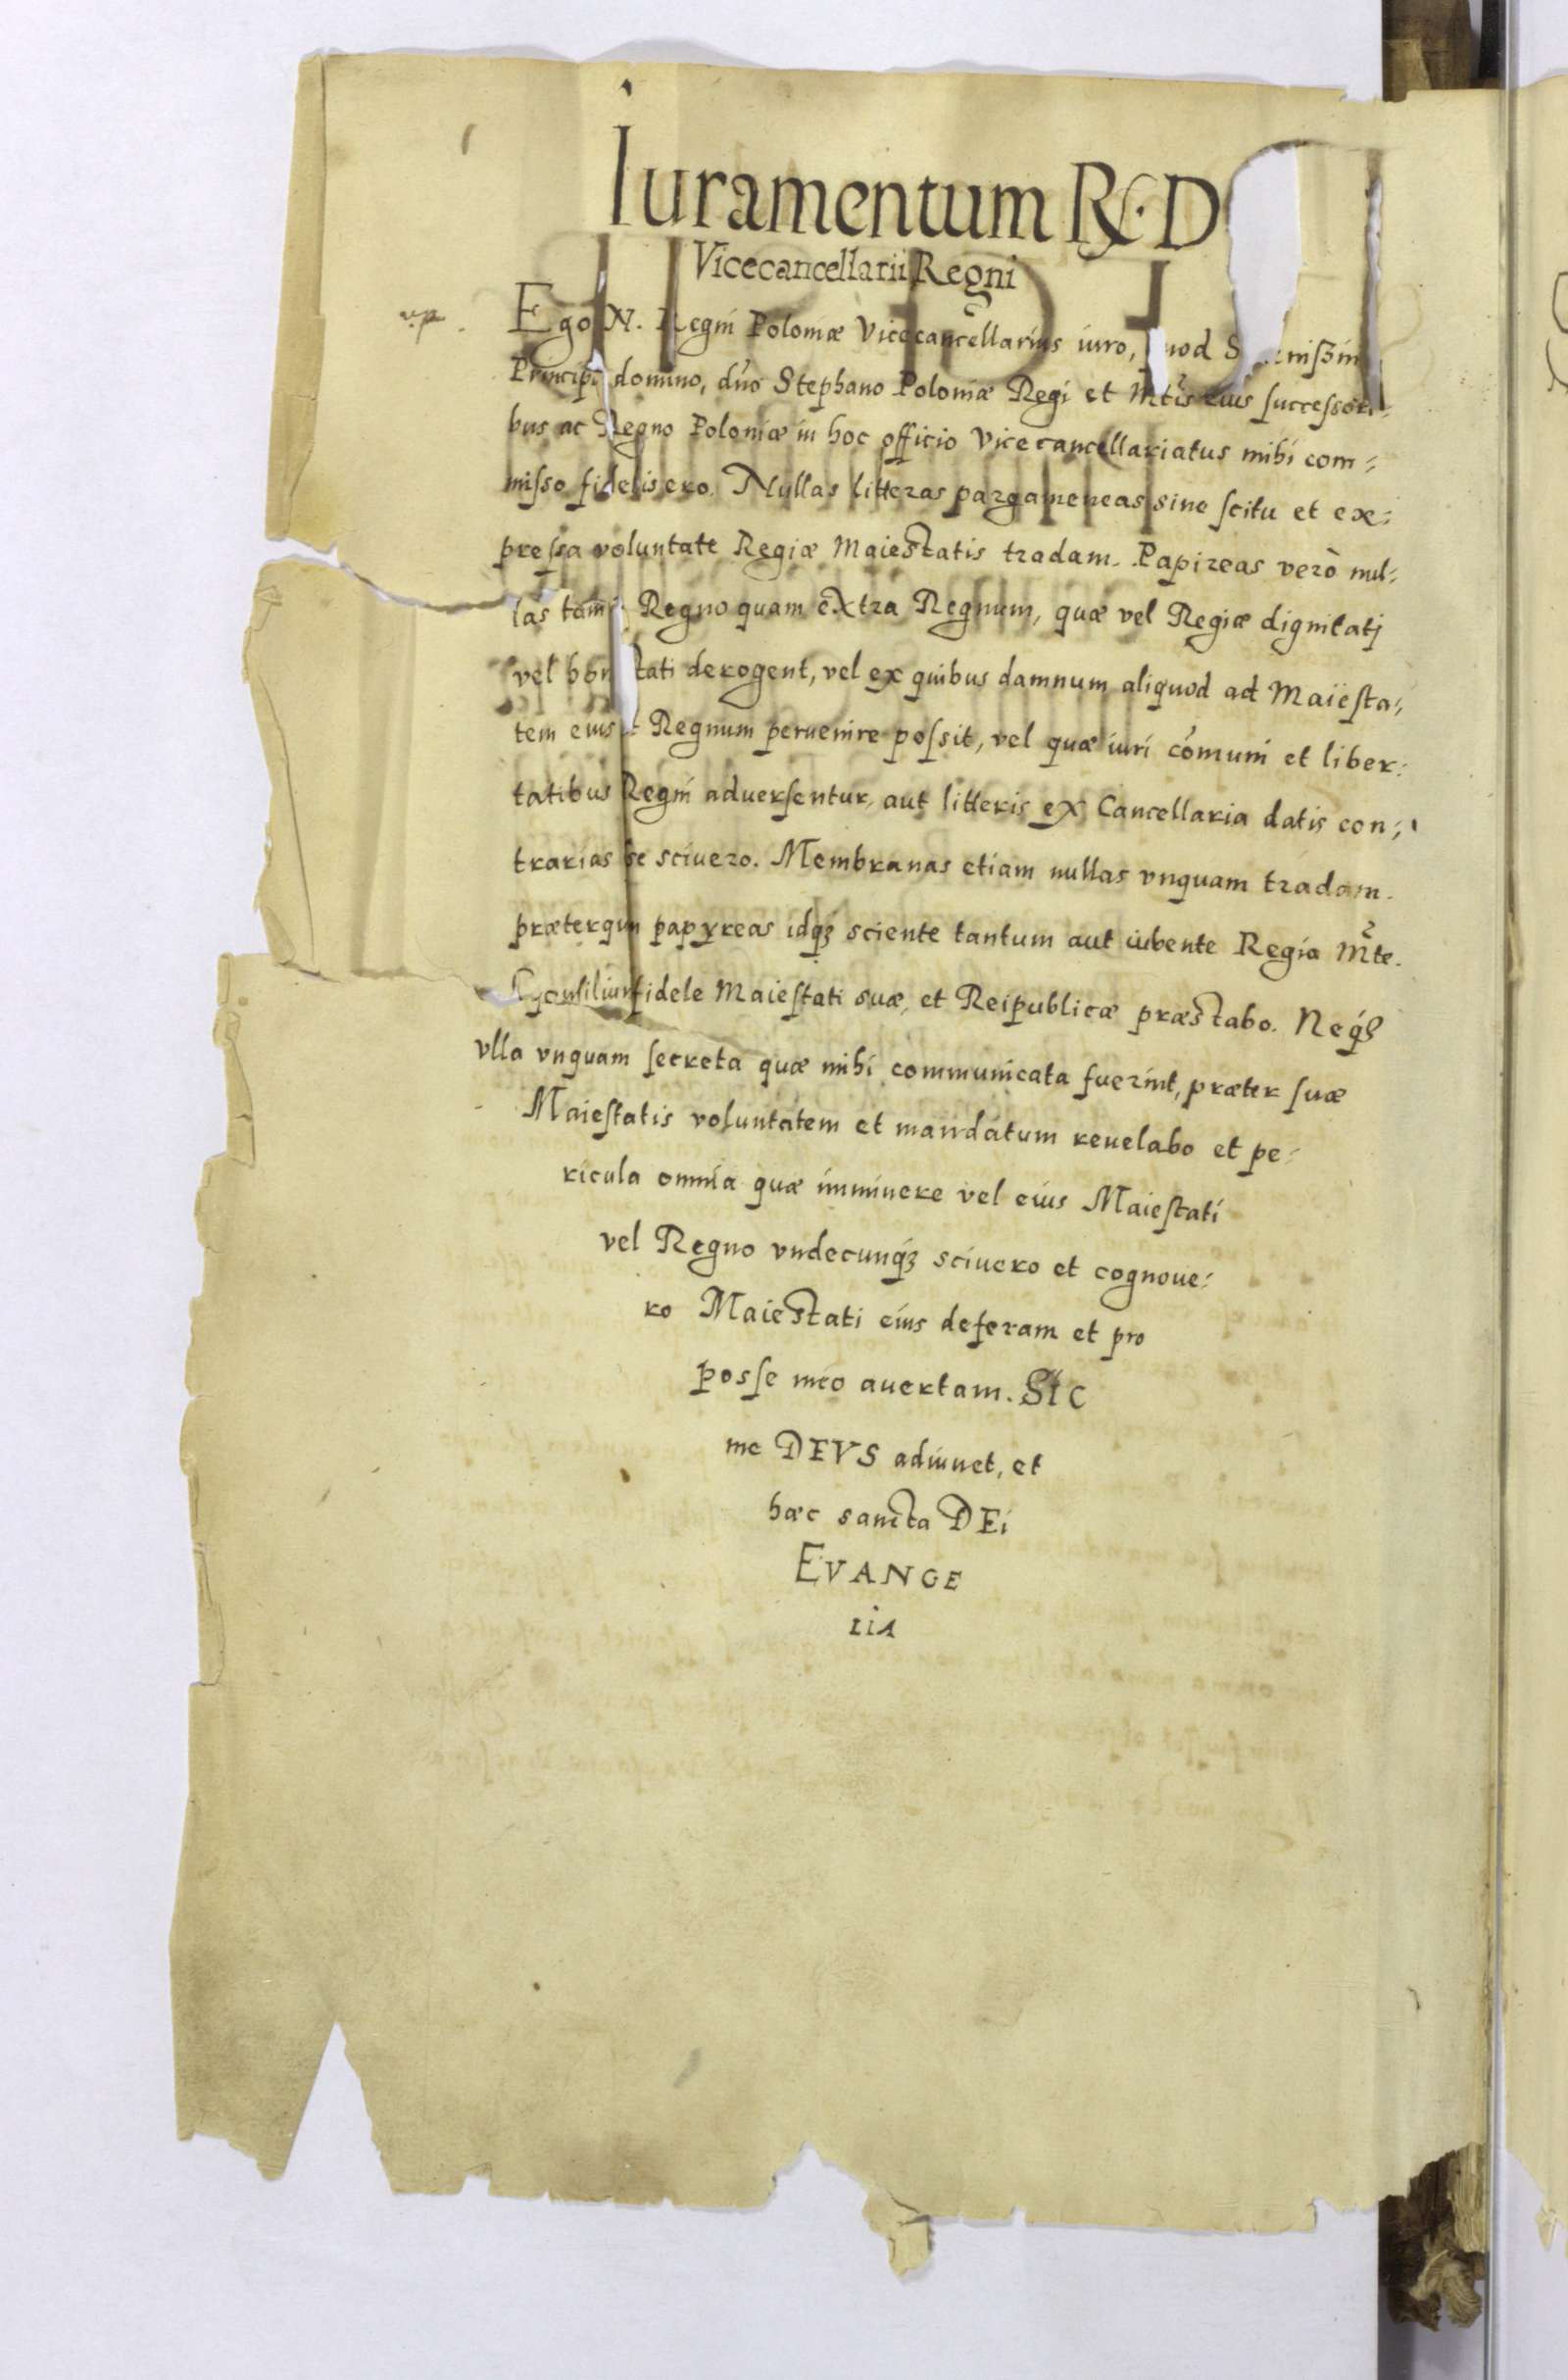 Iuramentum R. D
Vicecancellarii Regni
Ego N. Regni Poloniæ Vicecancellarius iuro,
Principi domino, dño Stephano Poloniæ Regi et Mtis eius successori-
bus ac Regno Poloniæ in hoc officio Vicecancellariatus mihi com-
misso fidelis ero. Nullas litteras pargameneas sine scitu et ex-
pressa voluntate Regiæ Maiestatis tradam. Papireas verò nul-
las tam Regno quam extra Regnum, quæ vel Regiæ dignitatj
vel derogent, vel ex quibus damnum aliquod ad Maiesta-
tem eius Regnum peruenire possit, vel quæ iuri cõmuni et liber-
tatibus Regni aduersentur, aut litteris ex Cancellaria datis con-
trarias se sciuero. Membranas etiam nullas vnquam tradam.
præterqum papyreas idq; sciente tantum aut iubente Regia Mte.
Consilium fidele Maiestati suæ, et Reipublicæ præstabo. Neq;
vlla vnquam secreta quæ mihi communicata fuerint, præter suæ
Maiestatis voluntatem et mandatum reuelabo et pe-
ricula omnia quæ imminere vel eius Maiestati
vel Regno vndecunq; sciuero et cognoue-
ro Maiestati eius deferam et pro
posse meo auertam. Sic
me DEVS adiuuet, et
hæc sancta DEi
EVANGE
LiA